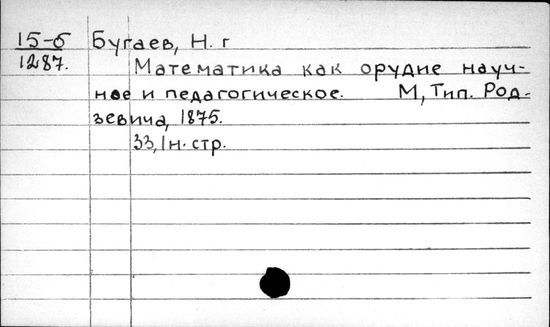 15-б Бугаев, Н. г
1287.
Математика как орудие науч-
ное и педагогическое. М, Тип. Род-
зевича, 1875.
33, 1 н. стр.